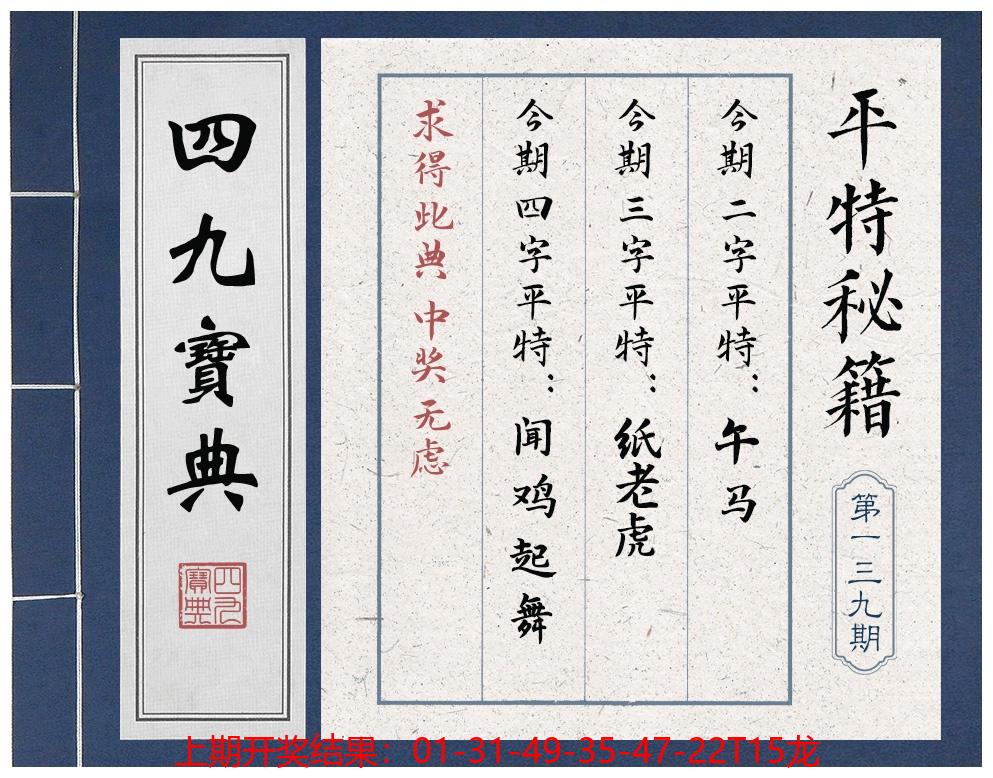 平特秘籍
第一三九期
今期二字平特：午马
今期三字平特：纸老虎
今期四字平特：闻鸡起舞
求得此典 中奖无虑
四九寶典
四九寶典
上期开奖结果：01-31-49-35-47-22T15龙